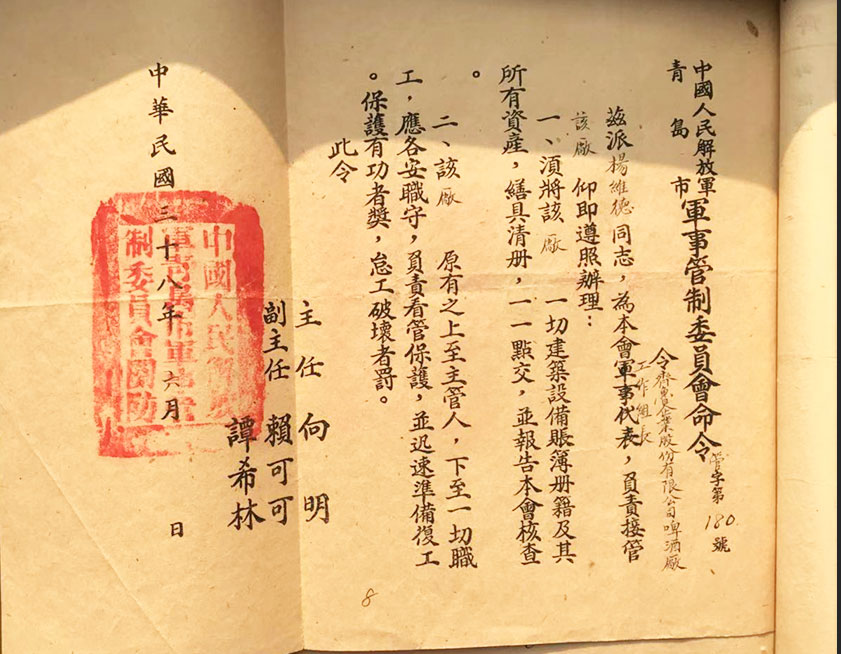 中國人民解放軍
青島市
軍事管制委員會命令
管字第180號
令齊魯企業股份有限公司啤酒廠
工作組長
茲派楊維德同志，為本會軍事代表，負責接管
該廠 仰即遵照辦理：
一、須將該廠一切建築設備賬簿册籍及其
所有資產，繕具清册，一一點交，並報告本會核查
。
二、該廠原有之上至主管人，下至一切職
工，應各安職守，負責看管保護，並迅速準備復工
。保護有功者獎，怠工破壞者罰。
此令
主任 向明
副主任 賴可可
譚希林
中國人民解放軍
青島市軍事管
制委員會關防
中華民國三十八年六月 日
8